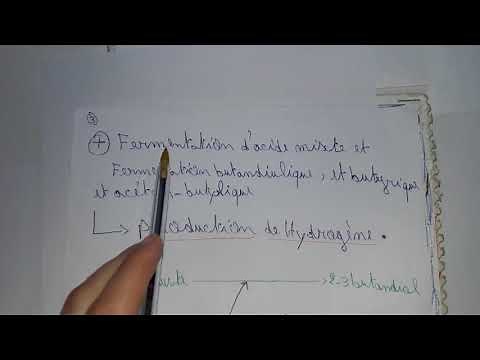 + Fermentation d'acide mixte et
Fermentation butandiolique, et butyrique
et acéton-butylique
↳ Production de Hydrogène.
2-3 butandiol